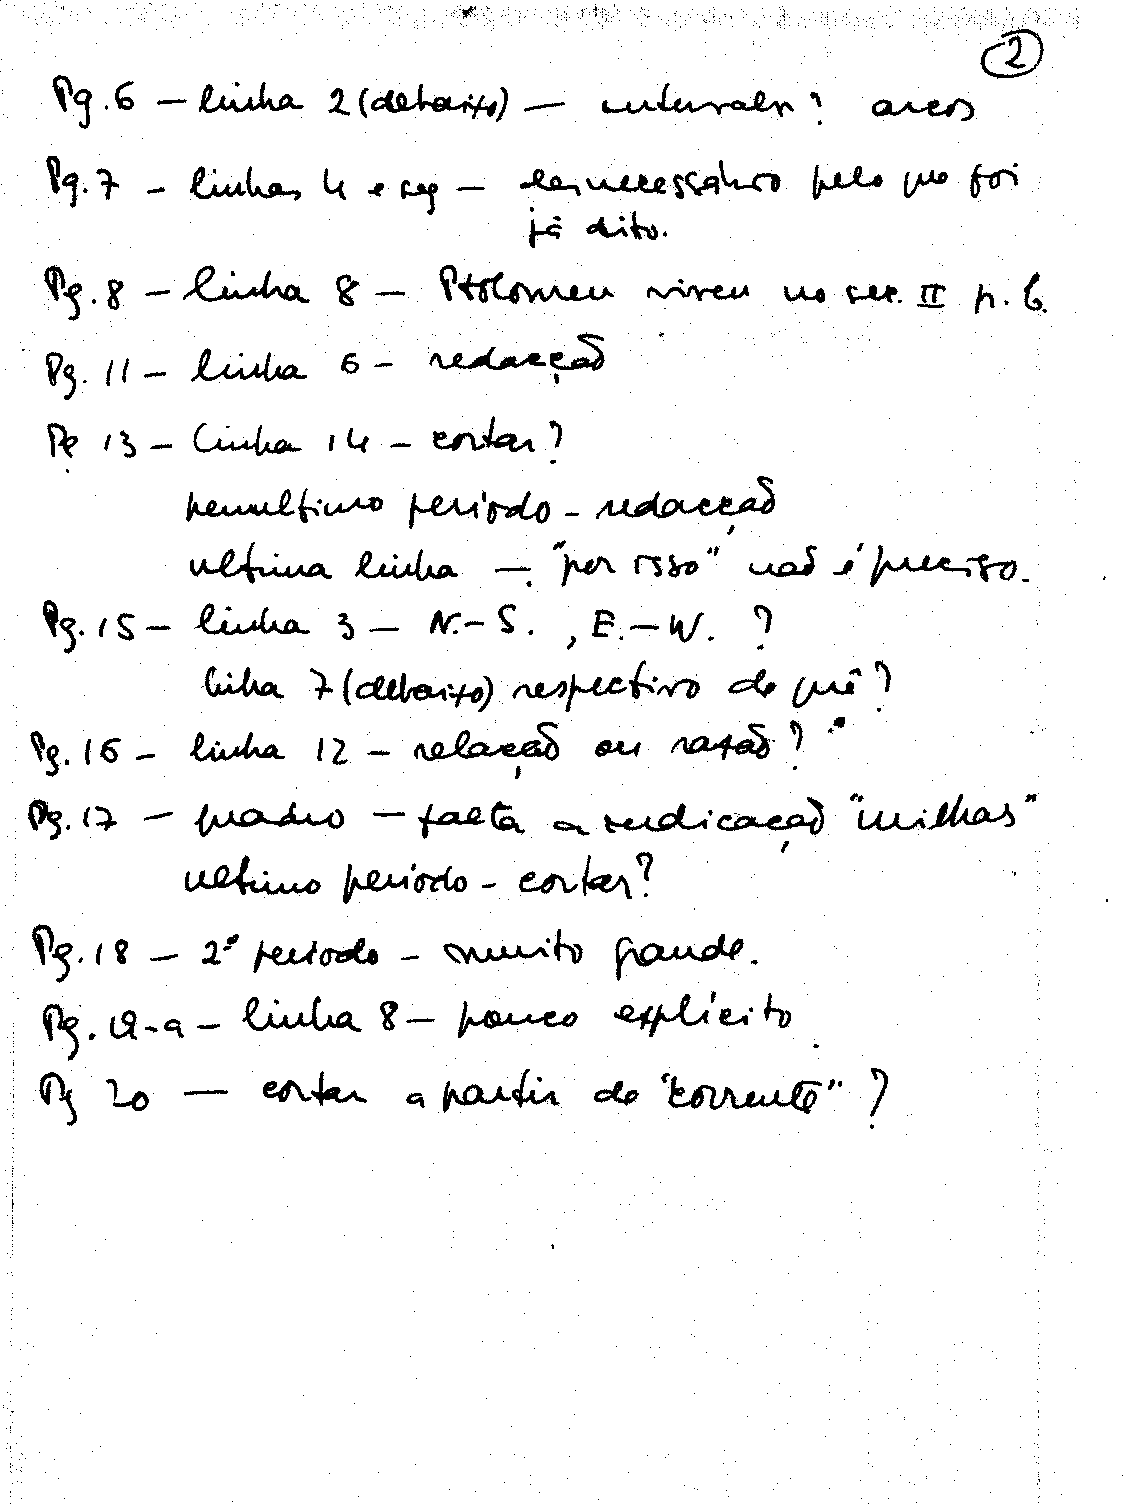 2
Pg. 6 — linha 2 (debaixo) — intervalos? arcos
Pg. 7 — linhas 4 e seg — desnecessário pelo que foi
já dito.
Pg. 8 — linha 8 — Ptolomeu viveu no sec. II p. C.
Pg. 11 — linha 6 — redacção
Pg 13 — linha 14 — cortar?
penultimo período — redacção
ultima linha — "por isso" não é preciso.
Pg. 15 — linha 3 — N.-S., E.-W. ?
linha 7 (debaixo) respectivo de quê?
Pg. 16 — linha 12 — relação ou razão?
Pg. 17 — quadro — falta a indicação "milhas"
ultimo período — cortar?
Pg. 18 — 2º período — muito grande.
Pg. 19-a — linha 8 — pouco explícito
Pg 20 — cortar a partir de "corrente" ?